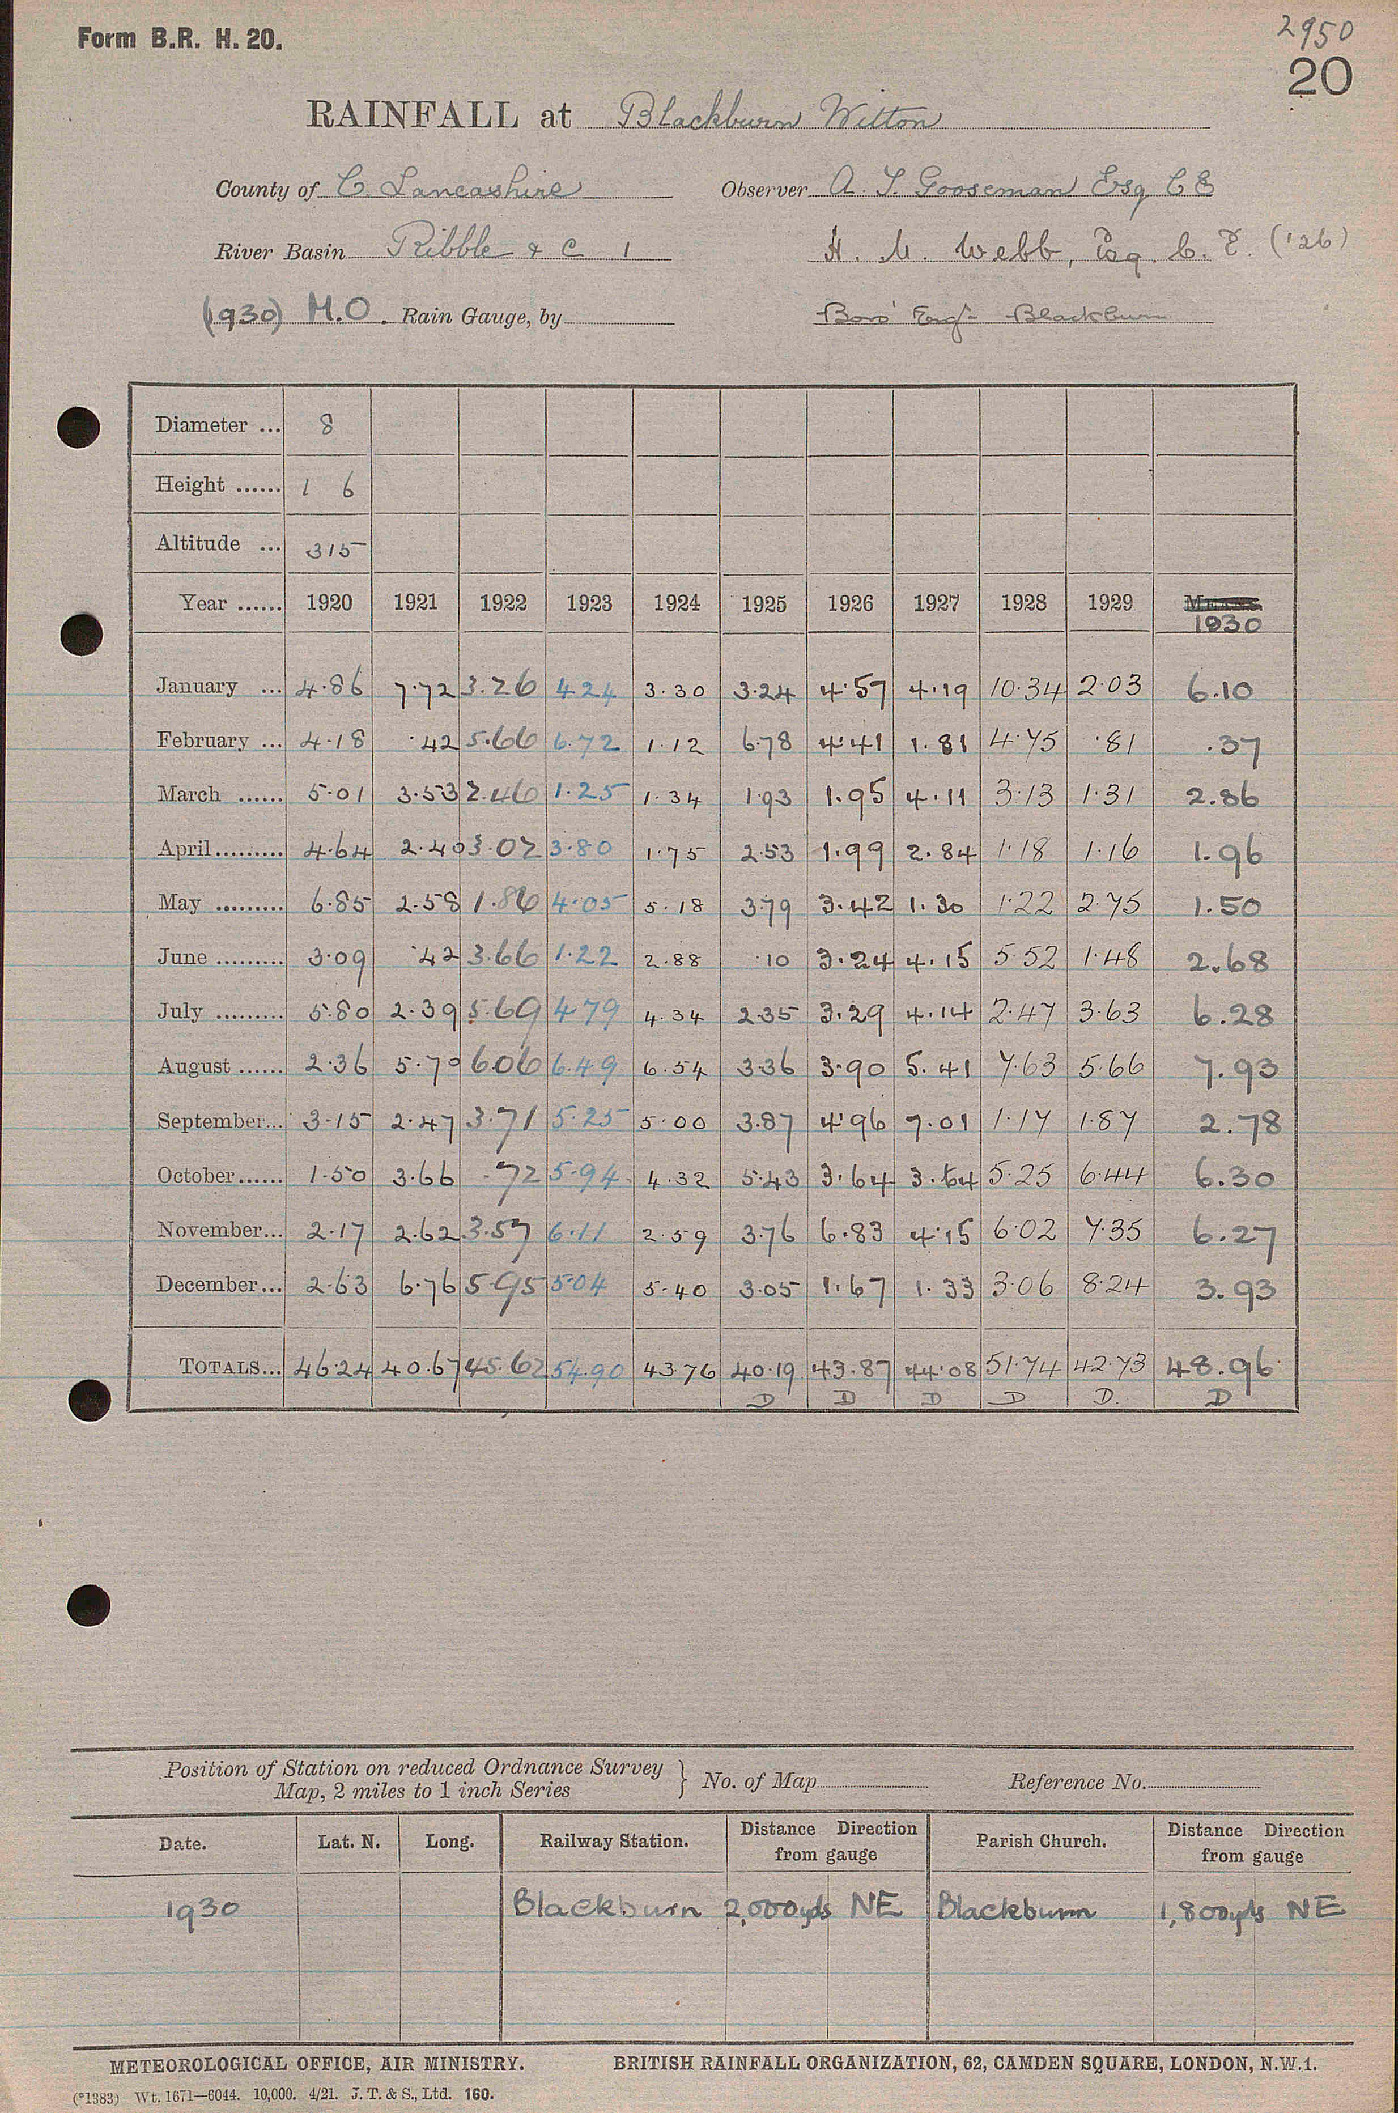 Form B.R. H. 20.
2950
20
RAINFALL at Blackburn Witton
County of C. Lancashire Observer A. T. Gooseman Esq C E
River Basin Ribble & C 1 H. M. Webb, Esq. C. E. ('26)
(1930) M.O. Rain Gauge, by Boro' Engr Blackburn
Diameter ... 8
Height ...... 1 6
Altitude ... 315
Year ...... 1920 1921 1922 1923 1924 1925 1926 1927 1928 1929 1930
January ... 4.86 7.72 3.26 4.24 3.30 3.24 4.57 4.19 10.34 2.03 6.10
February ... 4.18 .42 5.66 6.72 1.12 6.78 4.41 1.81 4.75 .81 .37
March ...... 5.01 3.53 2.46 1.25 1.34 1.93 1.95 4.11 3.13 1.31 2.86
April......... 4.64 2.40 3.02 3.80 1.75 2.53 1.99 2.84 1.18 1.16 1.96
May ......... 6.85 2.58 1.86 4.05 5.18 3.79 3.42 1.30 1.22 2.75 1.50
June ......... 3.09 .42 3.66 1.22 2.88 .10 3.24 4.15 5.52 1.48 2.68
July ......... 5.80 2.39 5.69 4.79 4.34 2.35 3.29 4.14 2.47 3.63 6.28
August ...... 2.36 5.70 6.06 6.49 6.54 3.36 3.90 5.41 7.63 5.66 7.93
September... 3.15 2.47 3.71 5.25 5.00 3.87 4.96 7.01 1.17 1.87 2.78
October...... 1.50 3.66 .72 5.94 4.32 5.43 3.64 3.64 5.25 6.44 6.30
November... 2.17 2.62 3.57 6.11 2.59 3.76 6.83 4.15 6.02 7.35 6.27
December... 2.63 6.76 5.95 5.04 5.40 3.05 1.67 1.33 3.06 8.24 3.93
TOTALS... 46.24 40.67 45.62 54.90 43.76 40.19 43.87 44.08 51.74 42.73 48.96
D D D D D. D
Position of Station on reduced Ordnance Survey
Map, 2 miles to 1 inch Series } No. of Map Reference No.
Date. Lat. N. Long. Railway Station. Distance Direction from gauge Parish Church. Distance Direction from gauge
1930 Blackburn 2,000yds NE Blackburn 1,800yds NE
METEOROLOGICAL OFFICE, AIR MINISTRY. BRITISH RAINFALL ORGANIZATION, 62, CAMDEN SQUARE, LONDON, N.W.1.
(*1383) Wt. 1671—6044. 10,000. 4/21. J. T. & S., Ltd. 160.